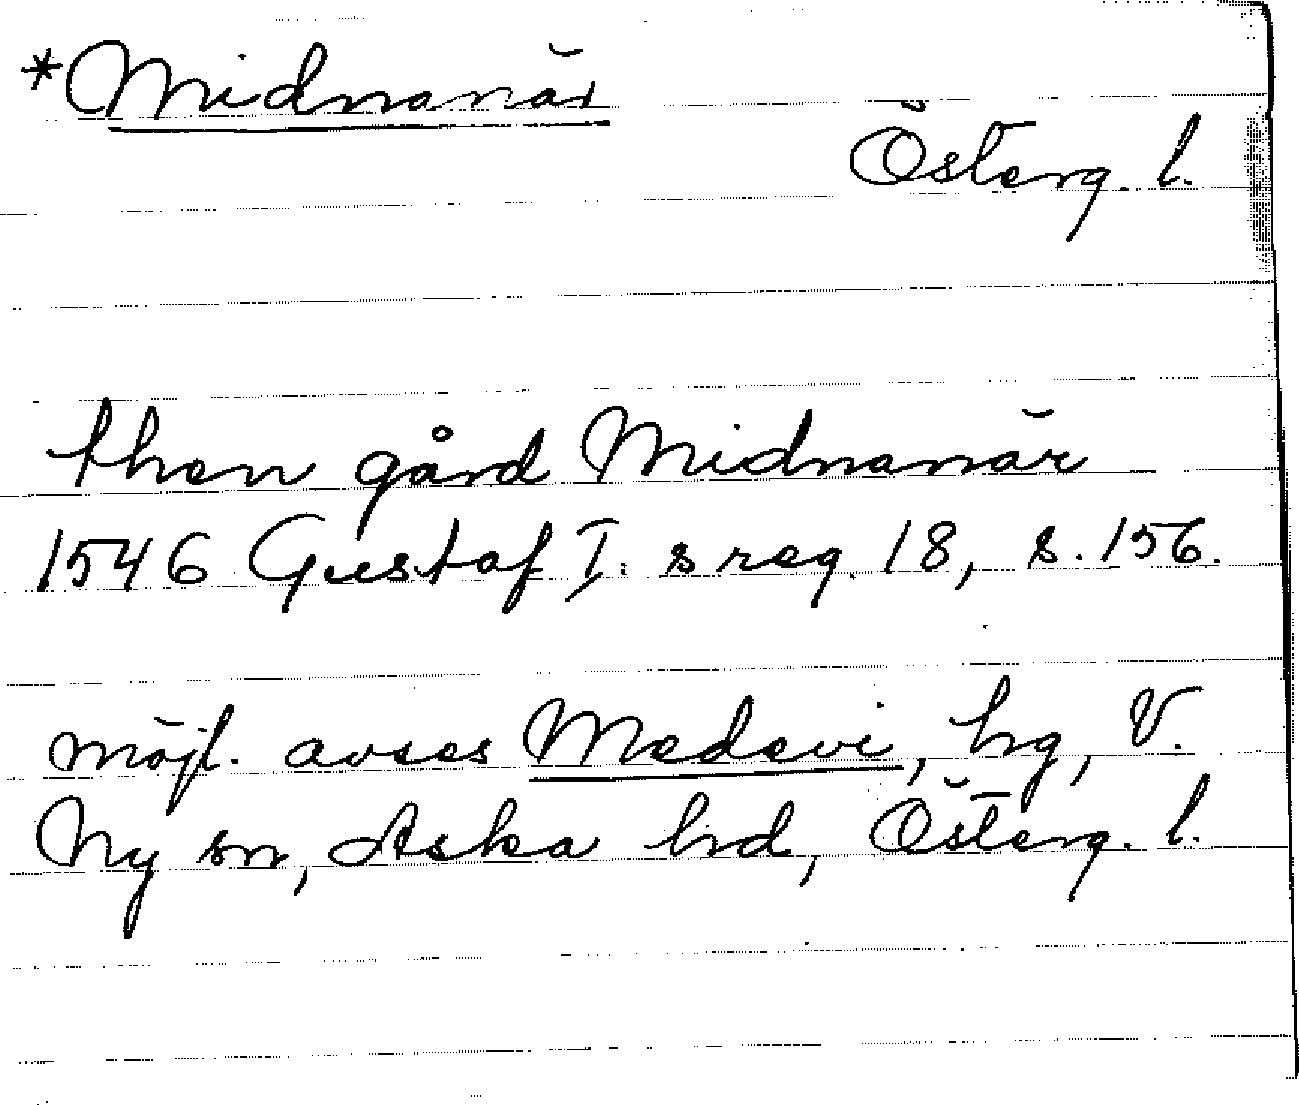 *Midnanär
Österg. l.
then gård Midnanär
1546 Gustaf I:s reg. 18, s. 156.
möjl. avses Medevi, hg, V.
Ny sn, Aska hd, Österg. l.